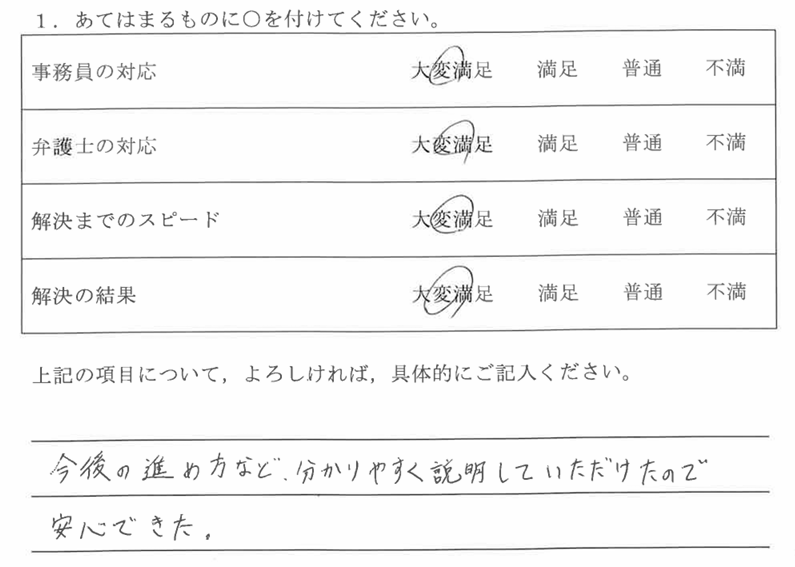 1．あてはまるものに○を付けてください。
事務員の対応 大変満足 満足 普通 不満
弁護士の対応 大変満足 満足 普通 不満
解決までのスピード 大変満足 満足 普通 不満
解決の結果 大変満足 満足 普通 不満
上記の項目について，よろしければ，具体的にご記入ください。
今後の進め方など、分かりやすく説明していただけたので
安心できた。